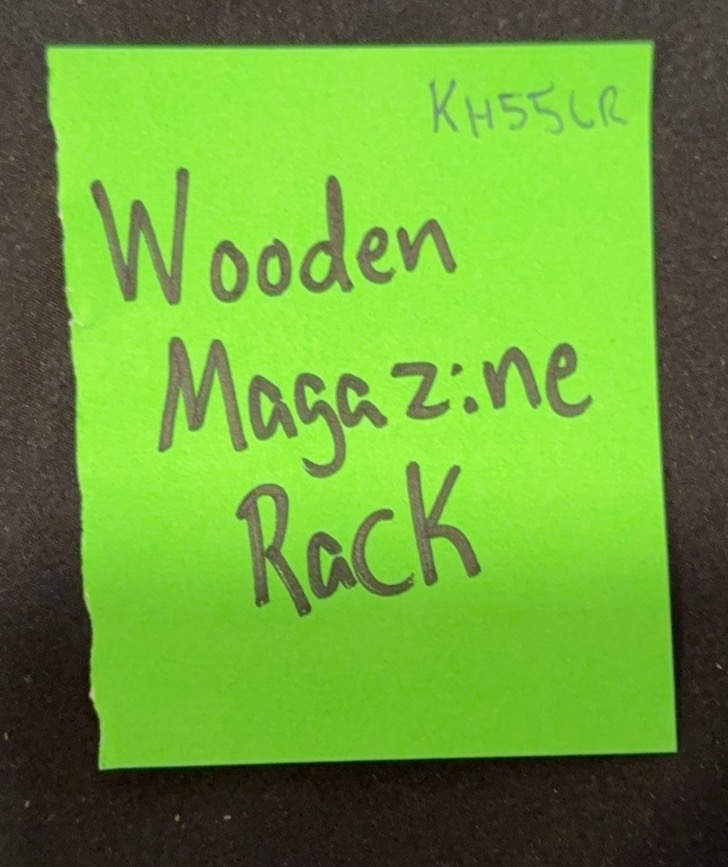 KH55LR
Wooden
Magazine
Rack